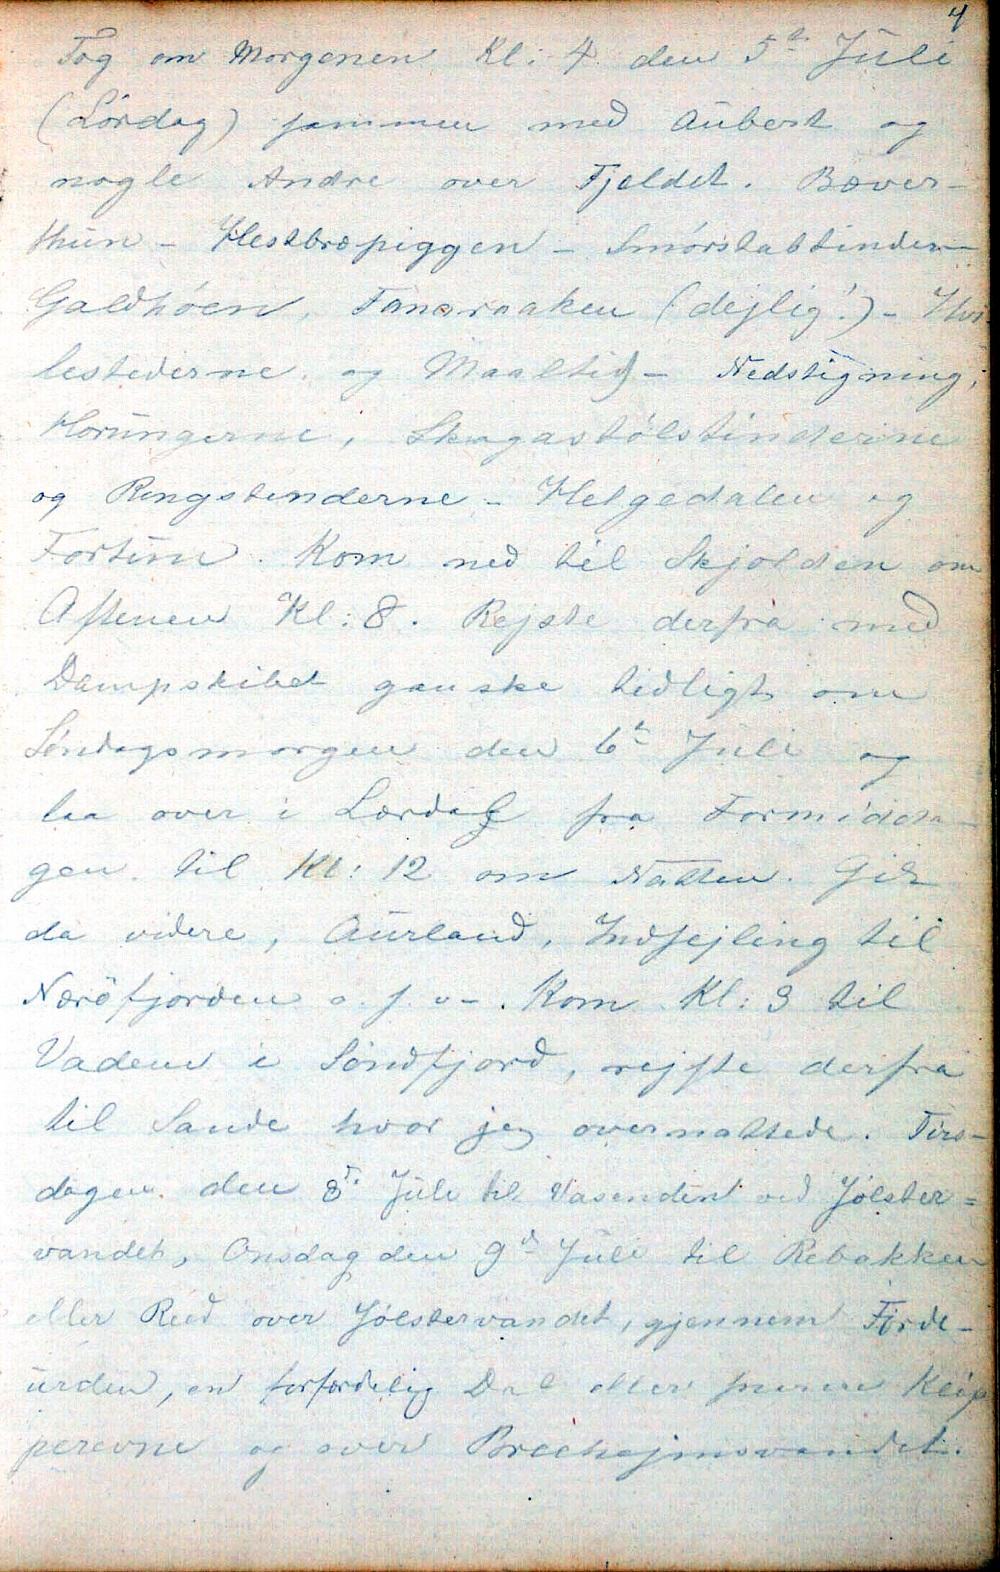 4
Tog om Morgenen Kl: 4 den 5te Juli
(Lördag) sammen med Aubert og
nogle Andre over Fjeldet. Bæver-
thun - Hestbræpiggen - Smörstabtinden -
Galdhöen, Fanaraaken (dejlig!) - Hvi-
lestederne og Maaltid - Nedstigning,
Horungerne, Skagastölstinderne
og Ringstinderne - Helgedalen og
Fortun. Kom ned til Skjolden om
Aftenen Kl: 8. Rejste derfra med
Dampskibet ganske tidligt om
Söndagsmorgen den 6te Juli og
laa over i Lærdal fra Formidda-
gen til Kl: 12 om Natten. Gik
da videre, Aurland, Indsejling til
Næröfjorden o. s. v -. Kom Kl: 3 til
Vadem i Söndfjord, rejste derfra
til Sande hvor jeg overnattede. Tirs-
dagen den 8de Juli til Vasenden ved Jölster=
vandet, Onsdag den 9de Juli til Rebakken
eller Reed over Jölstervandet, gjennem Förde-
urden, en forfærdelig Dal eller Klip
perevne og over Breehejmsvandet.